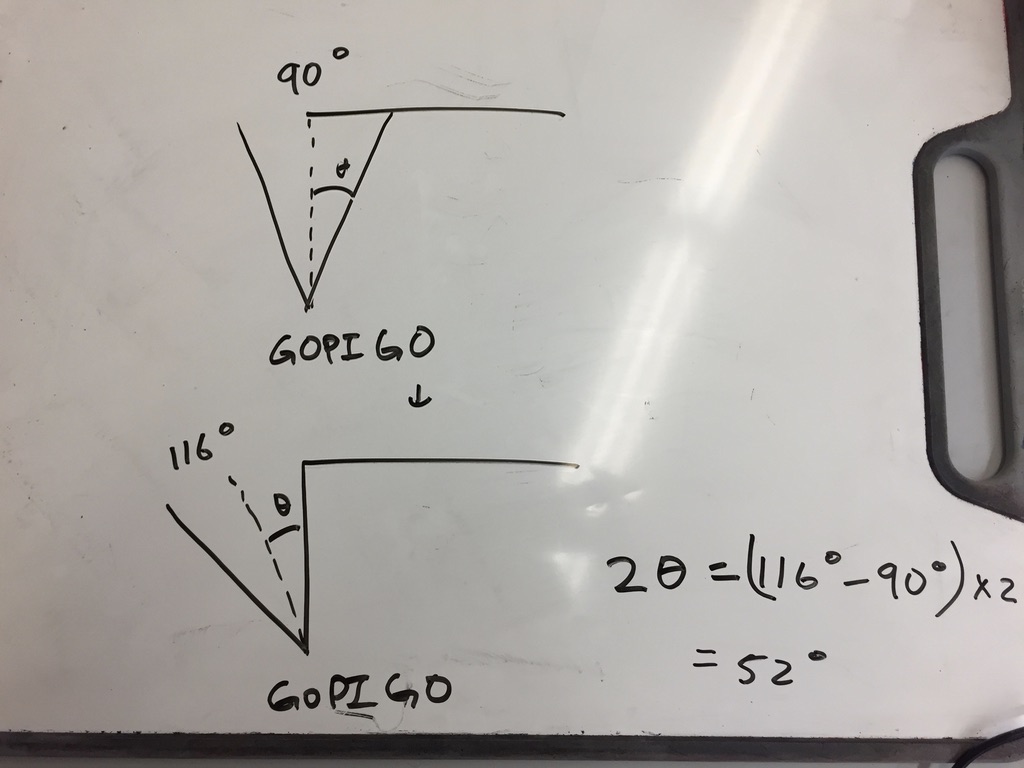 90°
θ
GOPIGO
↓
116°
θ
GOPIGO
2θ = (116° - 90°) x 2
= 52°